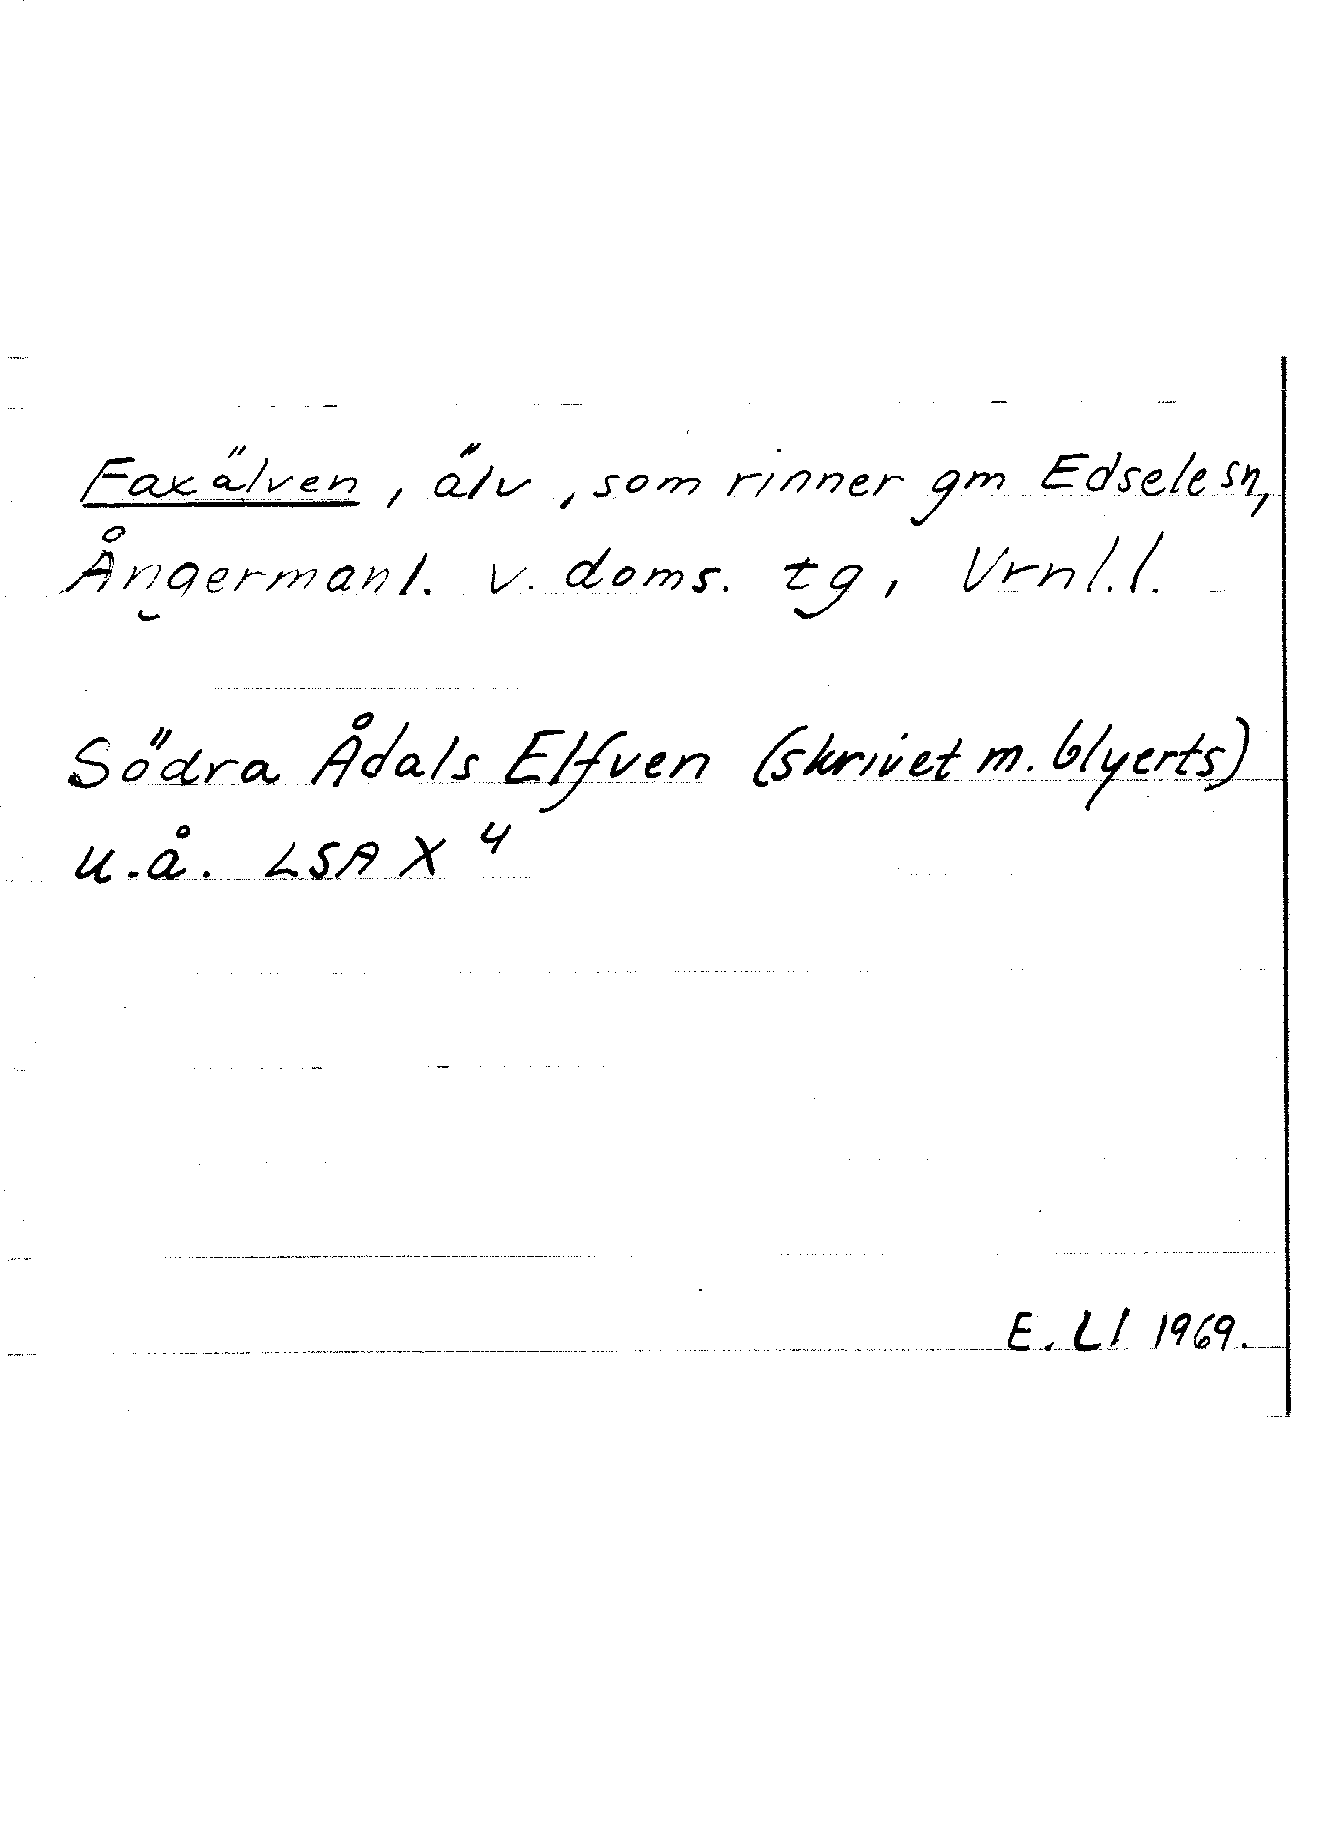 Faxälven, älv, som rinner gm Edsele sn,
Ångermanl. v. doms. tg, Vrnl.l.
Södra Ådals Elfven (skrivet m. blyerts)
u.å. LSA X 4
E. Ll 1969.